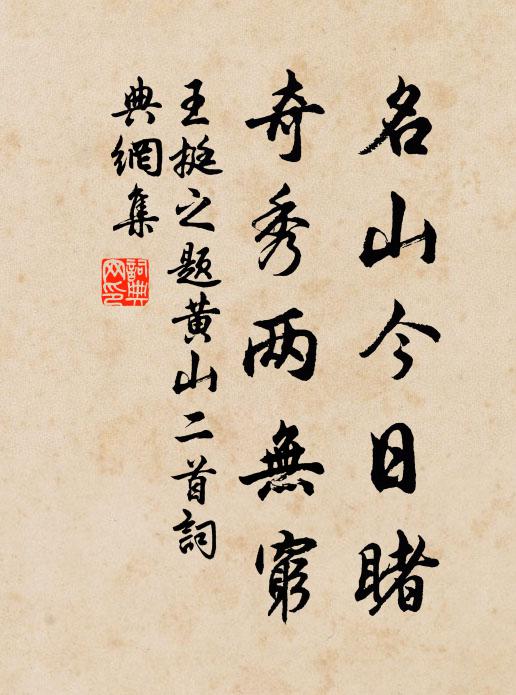 名山今日睹
奇秀两無窮
王挺之题黄山二首詞
典網集
詞典
网印